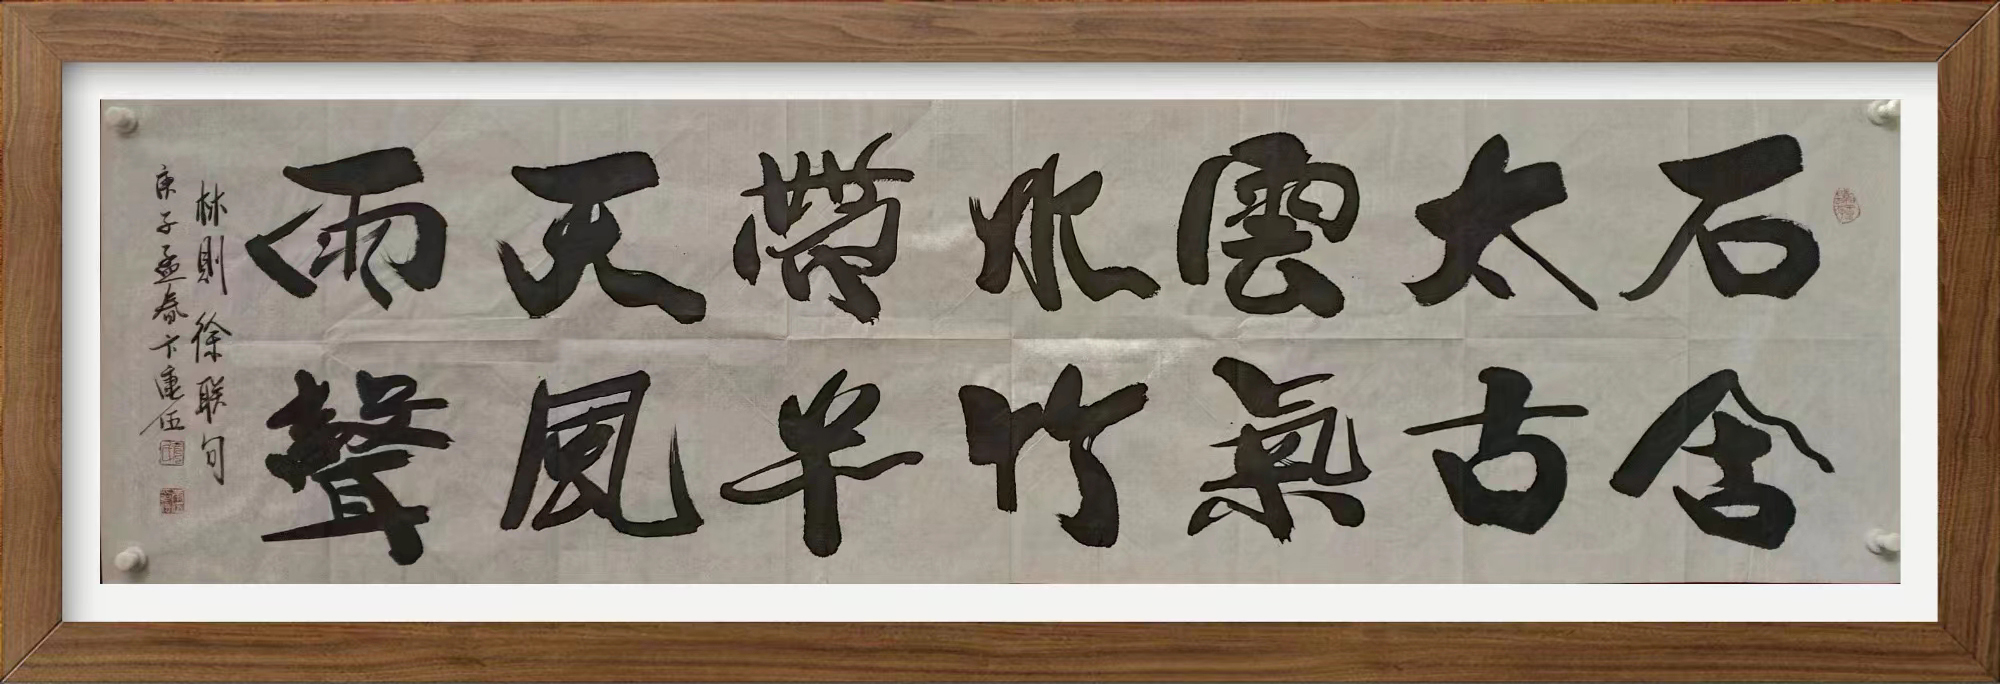 石舍
太古
雲氣
水竹
帶半
天風
雨聲
林則徐联句
庚子孟春